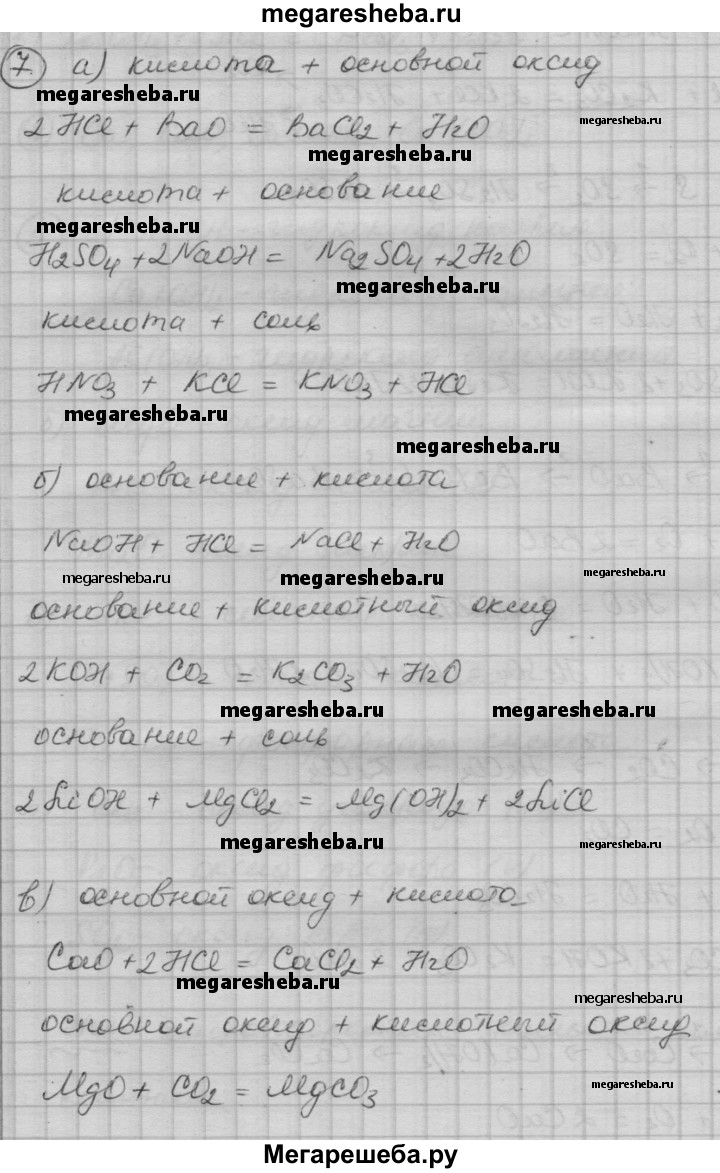 megaresheba.ru
7 а) кислота + основной оксид
megaresheba.ru
2HCl + BaO = BaCl2 + H2O
megaresheba.ru
кислота + основание
megaresheba.ru
H2SO4 + 2NaOH = Na2SO4 + 2H2O
megaresheba.ru
кислота + соль
HNO3 + KCl = KNO3 + HCl
megaresheba.ru
megaresheba.ru
б) основание + кислота
NaOH + HCl = NaCl + H2O
megaresheba.ru megaresheba.ru megaresheba.ru
основание + кислотный оксид
2KOH + CO2 = K2CO3 + H2O
megaresheba.ru megaresheba.ru
основание + соль
2LiOH + MgCl2 = Mg(OH)2 + 2LiCl
megaresheba.ru megaresheba.ru
в) основной оксид + кислота
CaO + 2HCl = CaCl2 + H2O
megaresheba.ru megaresheba.ru
основной оксид + кислотный оксид
MgO + CO2 = MgCO3
megaresheba.ru
Мегарешеба.ру